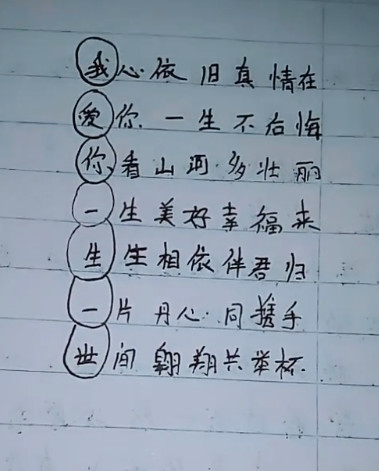 我心依旧真情在
爱你一生不后悔
你看山河多壮丽
一生美好幸福来
生生相依伴君归
一片丹心同携手
世间翱翔共举杯